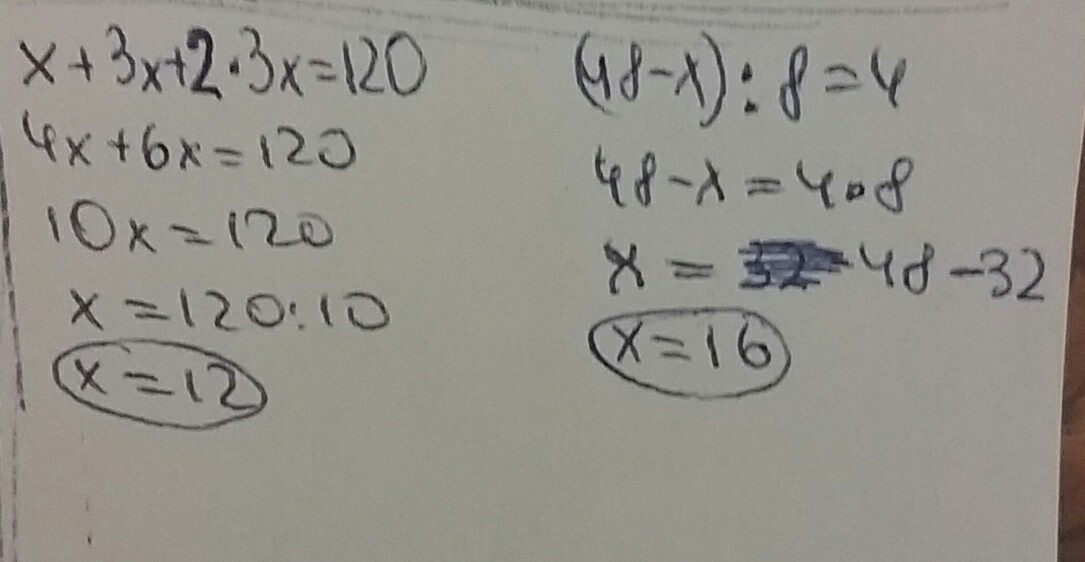 x+3x+2·3x=120
4x+6x=120
10x=120
x=120:10
x=12
(48-x):8=4
48-x=4·8
x=48-32
x=16